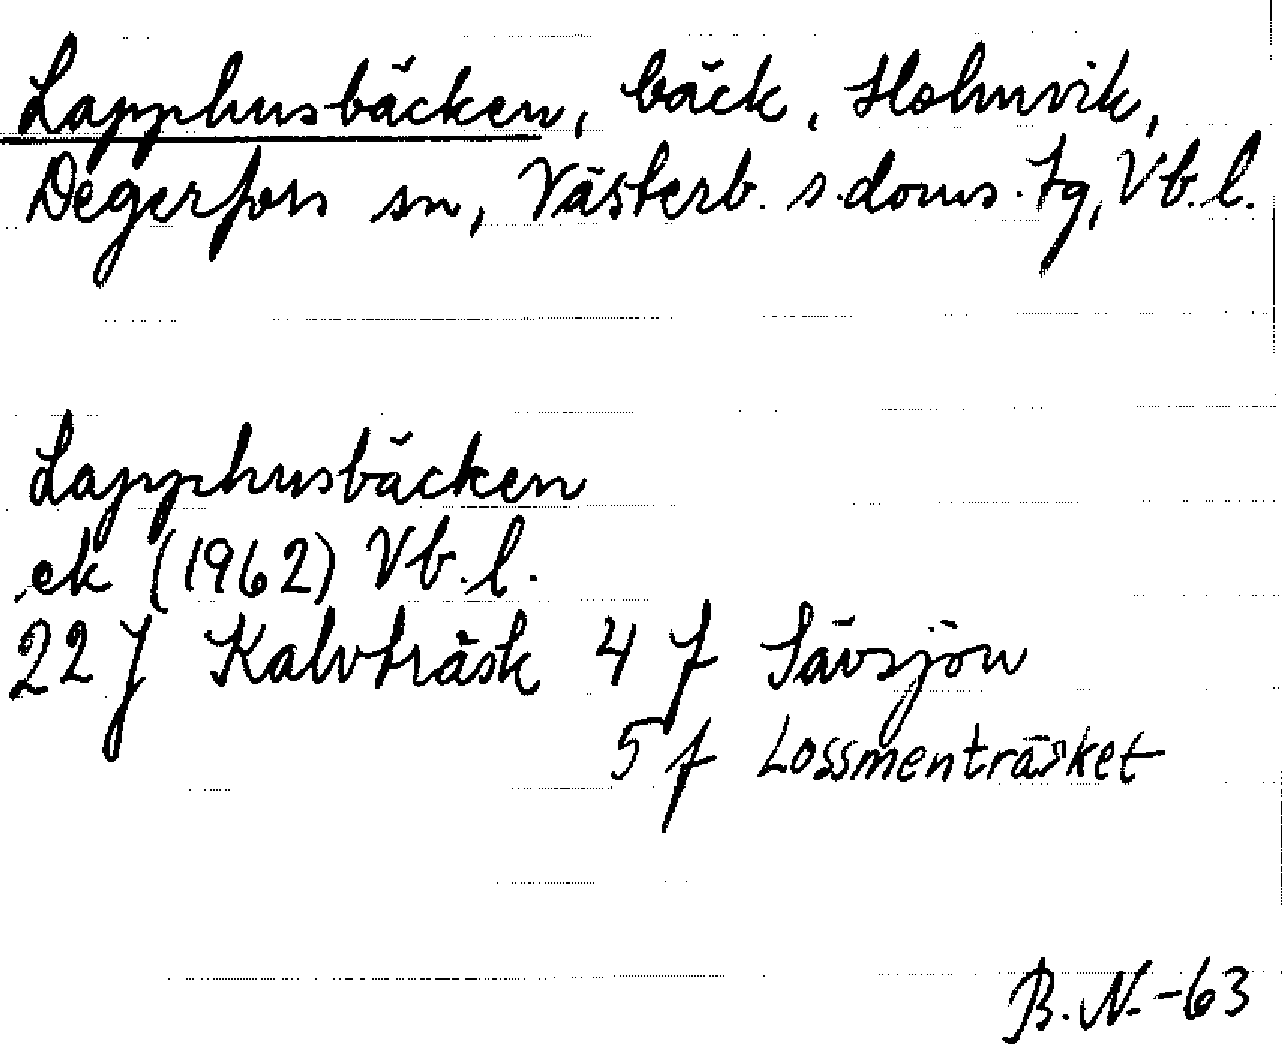 Lapphusbäcken, bäck, Holmvik,
Degerfors sn, Västerb. s. doms. tg, Vb. l.
Lapphusbäcken
ek (1962) Vb. l.
22 J Kalvträsk 4 f Sävsjön
5 f Lossmenträsket
B. N. -63